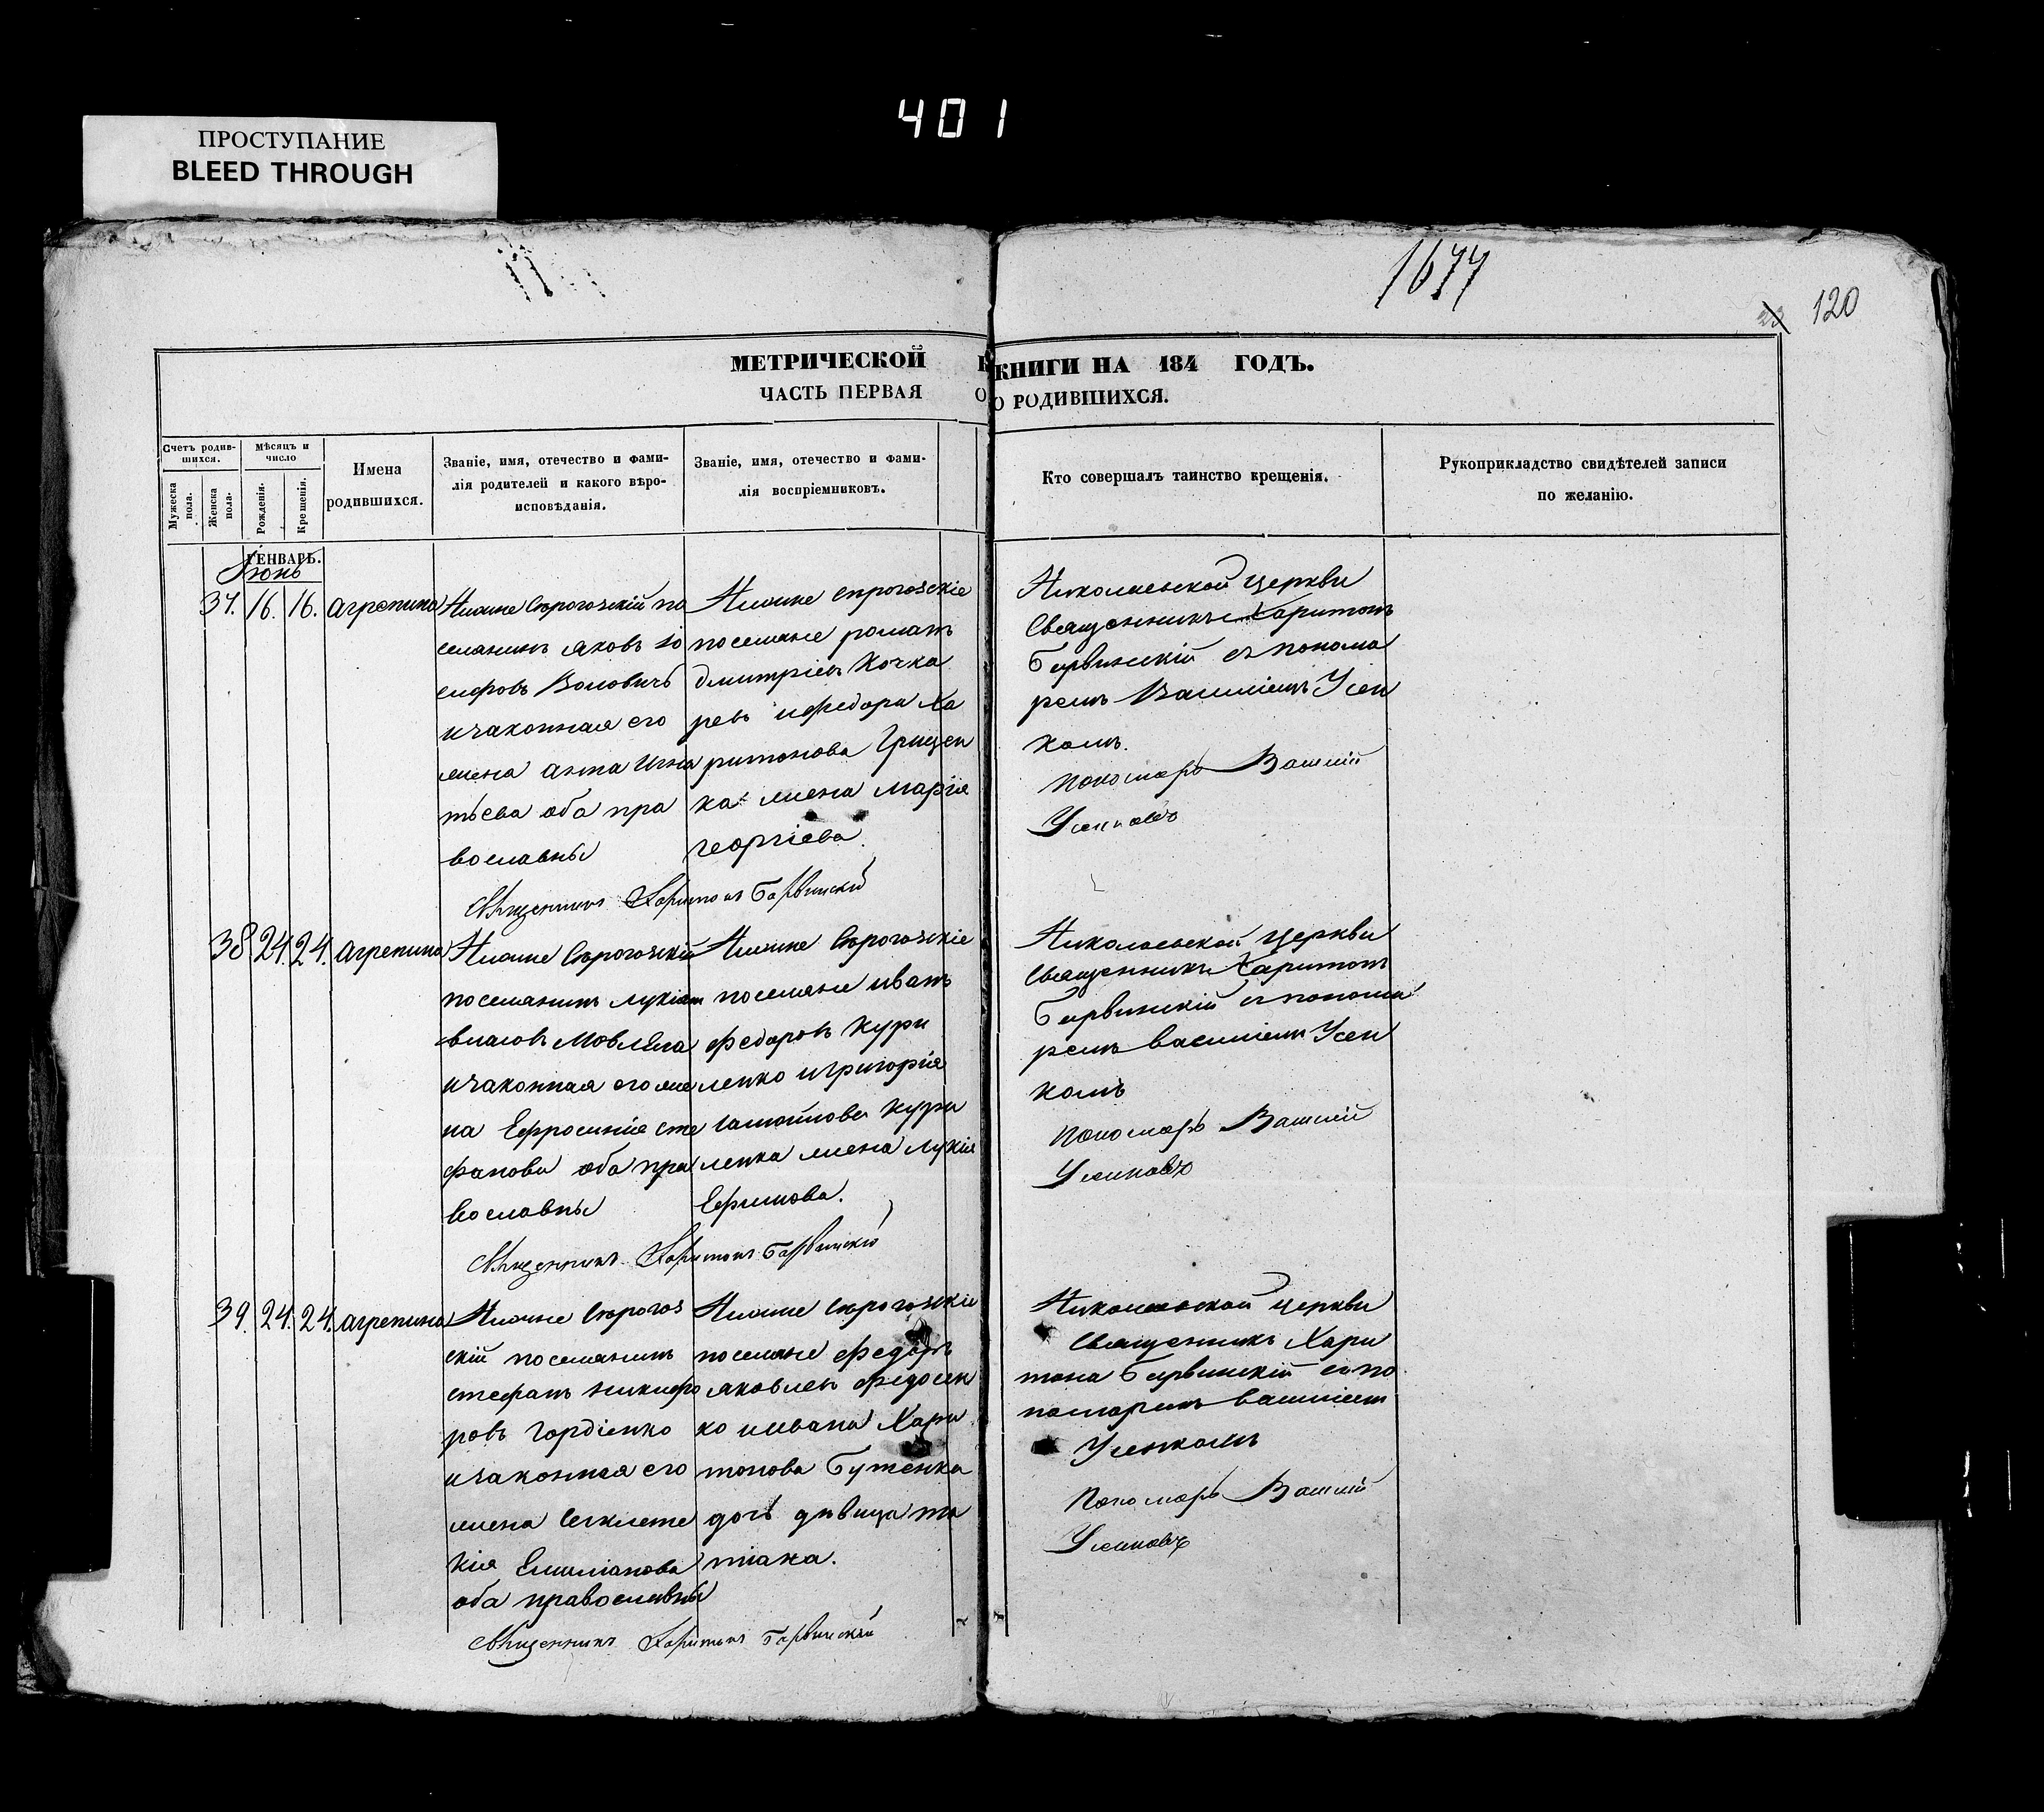 401
ПРОСТУПАНИЕ
BLEED THROUGH
1677
120
МЕТРИЧЕСКОЙ КНИГИ НА 184 ГОДЪ.
ЧАСТЬ ПЕРВАЯ О РОДИВШИХСЯ.
Счетъ родив-
шихся.
Мужеска пола.
Женска пола.
Мѣсяцъ и
число
Рожденія.
Крещенія.
Имена
родившихся.
Званіе, имя, отечество и фами-
лія родителей и какого вѣро-
исповѣданія.
Званіе, имя, отечество и фами-
лія воспріемниковъ.
Кто совершалъ таинство крещенія.
Рукоприкладство свидѣтелей записи
по желанію.
ГЕНВАРЬ.
Июнь
37. 16. 16. Агрепина
Нижне Сѣрогозскій по
селянинъ Яковъ Іо
сифовъ Воловичъ
и законная его
жена Анна Игна
тьева оба пра
вославны
Нижне Сѣрогозскіе
поселяне Романъ
Дмитріевъ Кочка
ревъ и Федора Ха
ритонова Грицен
ка жена Марія
Георгіева.
Николаевской церкви
Священникъ Харитонъ
Барвинскій съ понома
ремъ Василіемъ Усен
комъ.
Пономарь Василій
Усенковъ
Священникъ Харитонъ Барвинскій
38 24. 24. Агрепина
Нижне Сѣрогозскій
поселянинъ Лукіанъ
Власовъ
и законная его же
на Ефросинія Сте
фанова оба пра
вославны
Нижне Сѣрогозскіе
поселяне Иванъ
Федоровъ Кури
ленко и Григорія
Самойлова Кури
ленка жена Лукія
Ефимова.
Николаевской церкви
Священникъ Харитонъ
Барвинскій съ понома
ремъ Василіемъ Усен
комъ
Пономарь Василій
Усенковъ
Священникъ Харитонъ Барвинскій
39. 24. 24. Агрепина
Нижне Сѣрогоз
скій поселянинъ
Стефанъ Никифо
ровъ Гордіенко
и законная его
жена Секлете
кія Емиліанова
оба православны
Нижне Сѣрогозскіе
поселяне Федоръ
Яковлевъ Федосен
ко и Ивана Хари
тонова Бутенка
дочь дѣвица Та
тіана.
Николаевской церкви
Священникъ Хари
тонъ Барвинскій съ по
номаремъ Василіемъ
Усенкомъ
Пономарь Василій
Усенковъ
Священникъ Харитонъ Барвинскій